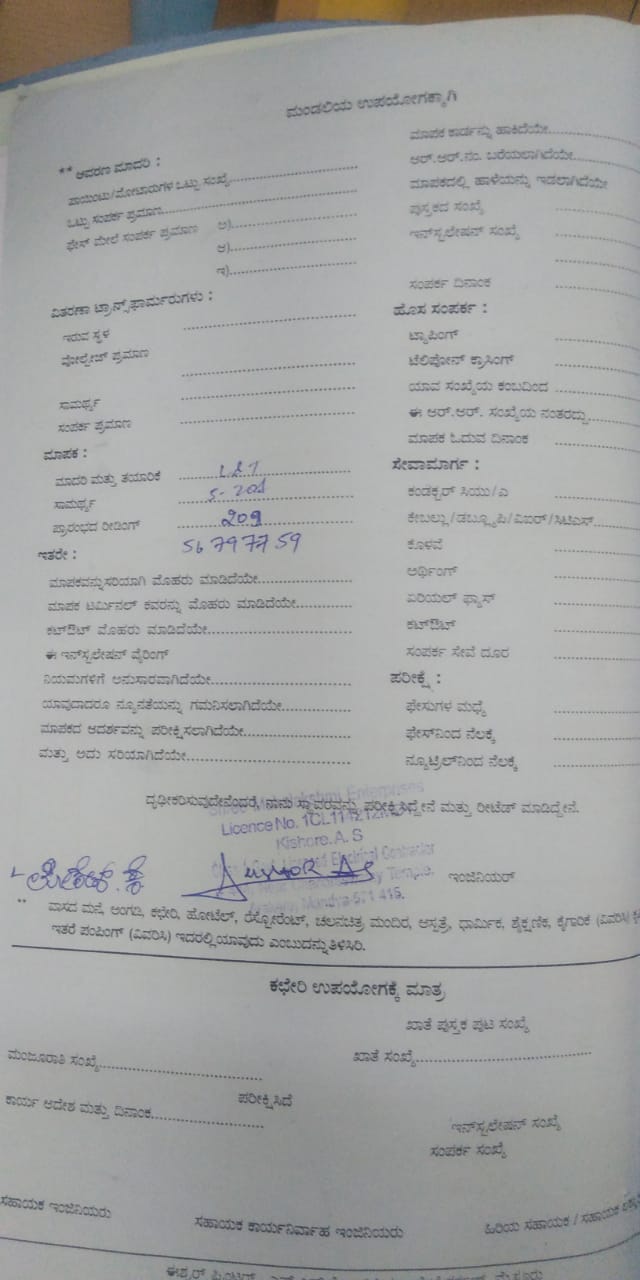 ಮಂಡಲಿಯ ಉಪಯೋಗಕ್ಕಾಗಿ
** ಆವರಣ ಮಾದರಿ :
ಪಾಯಿಂಟು/ಮೋಟಾರುಗಳ ಒಟ್ಟು ಸಂಖ್ಯೆ
ಒಟ್ಟು ಸಂಪರ್ಕ ಪ್ರಮಾಣ
ಫೇಸ್ ಮೇಲೆ ಸಂಪರ್ಕ ಪ್ರಮಾಣ ಅ)
ಆ)
ಇ)
ವಿತರಣಾ ಟ್ರಾನ್ಸ್‌ಫಾರ್ಮರುಗಳು :
ಇರುವ ಸ್ಥಳ
ವೋಲ್ಟೇಜ್ ಪ್ರಮಾಣ
ಸಾಮರ್ಥ್ಯ
ಸಂಪರ್ಕ ಪ್ರಮಾಣ
ಮಾಪಕ :
ಮಾದರಿ ಮತ್ತು ತಯಾರಿಕೆ L&T
ಸಾಮರ್ಥ್ಯ
ಪ್ರಾರಂಭದ ರೀಡಿಂಗ್ 209
ಇತರೇ : 56797759
ಮಾಪಕವನ್ನು ಸರಿಯಾಗಿ ಮೊಹರು ಮಾಡಿದೆಯೇ
ಮಾಪಕ ಟರ್ಮಿನಲ್ ಕವರನ್ನು ಮೊಹರು ಮಾಡಿದೆಯೇ
ಕಟ್‌ಔಟ್ ಮೊಹರು ಮಾಡಿದೆಯೇ
ಈ ಇನ್‌ಸ್ಟಲೇಷನ್ ವೈರಿಂಗ್
ನಿಯಮಗಳಿಗೆ ಅನುಸಾರವಾಗಿದೆಯೇ
ಯಾವುದಾದರೂ ನ್ಯೂನತೆಯನ್ನು ಗಮನಿಸಲಾಗಿದೆಯೇ
ಮಾಪಕದ ಆದರ್ಶವನ್ನು ಪರೀಕ್ಷಿಸಲಾಗಿದೆಯೇ
ಮತ್ತು ಅದು ಸರಿಯಾಗಿದೆಯೇ
ಮಾಪಕ ಕಾರ್ಡನ್ನು ಹಾಕಿದೆಯೇ
ಆರ್.ಆರ್.ನಂ. ಬರೆಯಲಾಗಿದೆಯೇ
ಮಾಪಕದಲ್ಲಿ ಹಾಳೆಯನ್ನು ಇಡಲಾಗಿದೆಯೇ
ಪುಸ್ತಕದ ಸಂಖ್ಯೆ
ಇನ್‌ಸ್ಟಲೇಷನ್ ಸಂಖ್ಯೆ
ಸಂಪರ್ಕ ದಿನಾಂಕ
ಹೊಸ ಸಂಪರ್ಕ :
ಟ್ಯಾಪಿಂಗ್
ಟೆಲಿಫೋನ್ ಕ್ರಾಸಿಂಗ್
ಯಾವ ಸಂಖ್ಯೆಯ ಕಂಬದಿಂದ
ಈ ಆರ್.ಆರ್. ಸಂಖ್ಯೆಯ ನಂತರದ್ದು
ಮಾಪಕ ಓದುವ ದಿನಾಂಕ
ಸೇವಾಮಾರ್ಗ :
ಕಂಡಕ್ಟರ್ ಸಿಯು/ಎ
ಕೇಬಲ್ಲು/ಡಬ್ಲ್ಯೂಪಿ/ವಿಐಆರ್/ಸಿಟಿಎಸ್
ಕೊಳವೆ
ಅರ್ಥಿಂಗ್
ಏರಿಯಲ್ ಫ್ಯೂಸ್
ಕಟ್‌ಔಟ್
ಸಂಪರ್ಕ ಸೇವೆ ದೂರ
ಪರೀಕ್ಷೆ :
ಫೇಸುಗಳ ಮಧ್ಯೆ
ಫೇಸ್‌ನಿಂದ ನೆಲಕ್ಕೆ
ನ್ಯೂಟ್ರಲ್‌ನಿಂದ ನೆಲಕ್ಕೆ
ದೃಢೀಕರಿಸುವುದೇನೆಂದರೆ, ನಾನು ಸ್ಥಾವರವನ್ನು ಪರೀಕ್ಷಿಸಿದ್ದೇನೆ ಮತ್ತು ರೀಟೆಡ್ ಮಾಡಿದ್ದೇನೆ.
Enterprises
Licence No.
Kishore. A. S
Electrical Contractor
Temple,
Mandya-571 415.
ಇಂಜಿನಿಯರ್
** ವಾಸದ ಮನೆ, ಅಂಗಡಿ, ಕಛೇರಿ, ಹೋಟೆಲ್, ರೆಸ್ಟೋರೆಂಟ್, ಚಲನಚಿತ್ರ ಮಂದಿರ, ಆಸ್ಪತ್ರೆ, ಧಾರ್ಮಿಕ, ಶೈಕ್ಷಣಿಕ, ಕೈಗಾರಿಕೆ (ವಿವರಿಸಿ)
ಇತರೆ ಪಂಪಿಂಗ್ (ವಿವರಿಸಿ) ಇದರಲ್ಲಿಯಾವುದು ಎಂಬುದನ್ನು ತಿಳಿಸಿರಿ.
ಕಛೇರಿ ಉಪಯೋಗಕ್ಕೆ ಮಾತ್ರ
ಖಾತೆ ಪುಸ್ತಕ ಪುಟ ಸಂಖ್ಯೆ
ಮಂಜೂರಾತಿ ಸಂಖ್ಯೆ ಖಾತೆ ಸಂಖ್ಯೆ
ಪರೀಕ್ಷಿಸಿದೆ
ಕಾರ್ಯ ಆದೇಶ ಮತ್ತು ದಿನಾಂಕ
ಇನ್‌ಸ್ಟಲೇಷನ್ ಸಂಖ್ಯೆ
ಸಂಪರ್ಕ ಸಂಖ್ಯೆ
ಸಹಾಯಕ ಇಂಜಿನಿಯರು ಸಹಾಯಕ ಕಾರ್ಯನಿರ್ವಾಹ ಇಂಜಿನಿಯರು ಹಿರಿಯ ಸಹಾಯಕ / ಸಹಾಯಕ